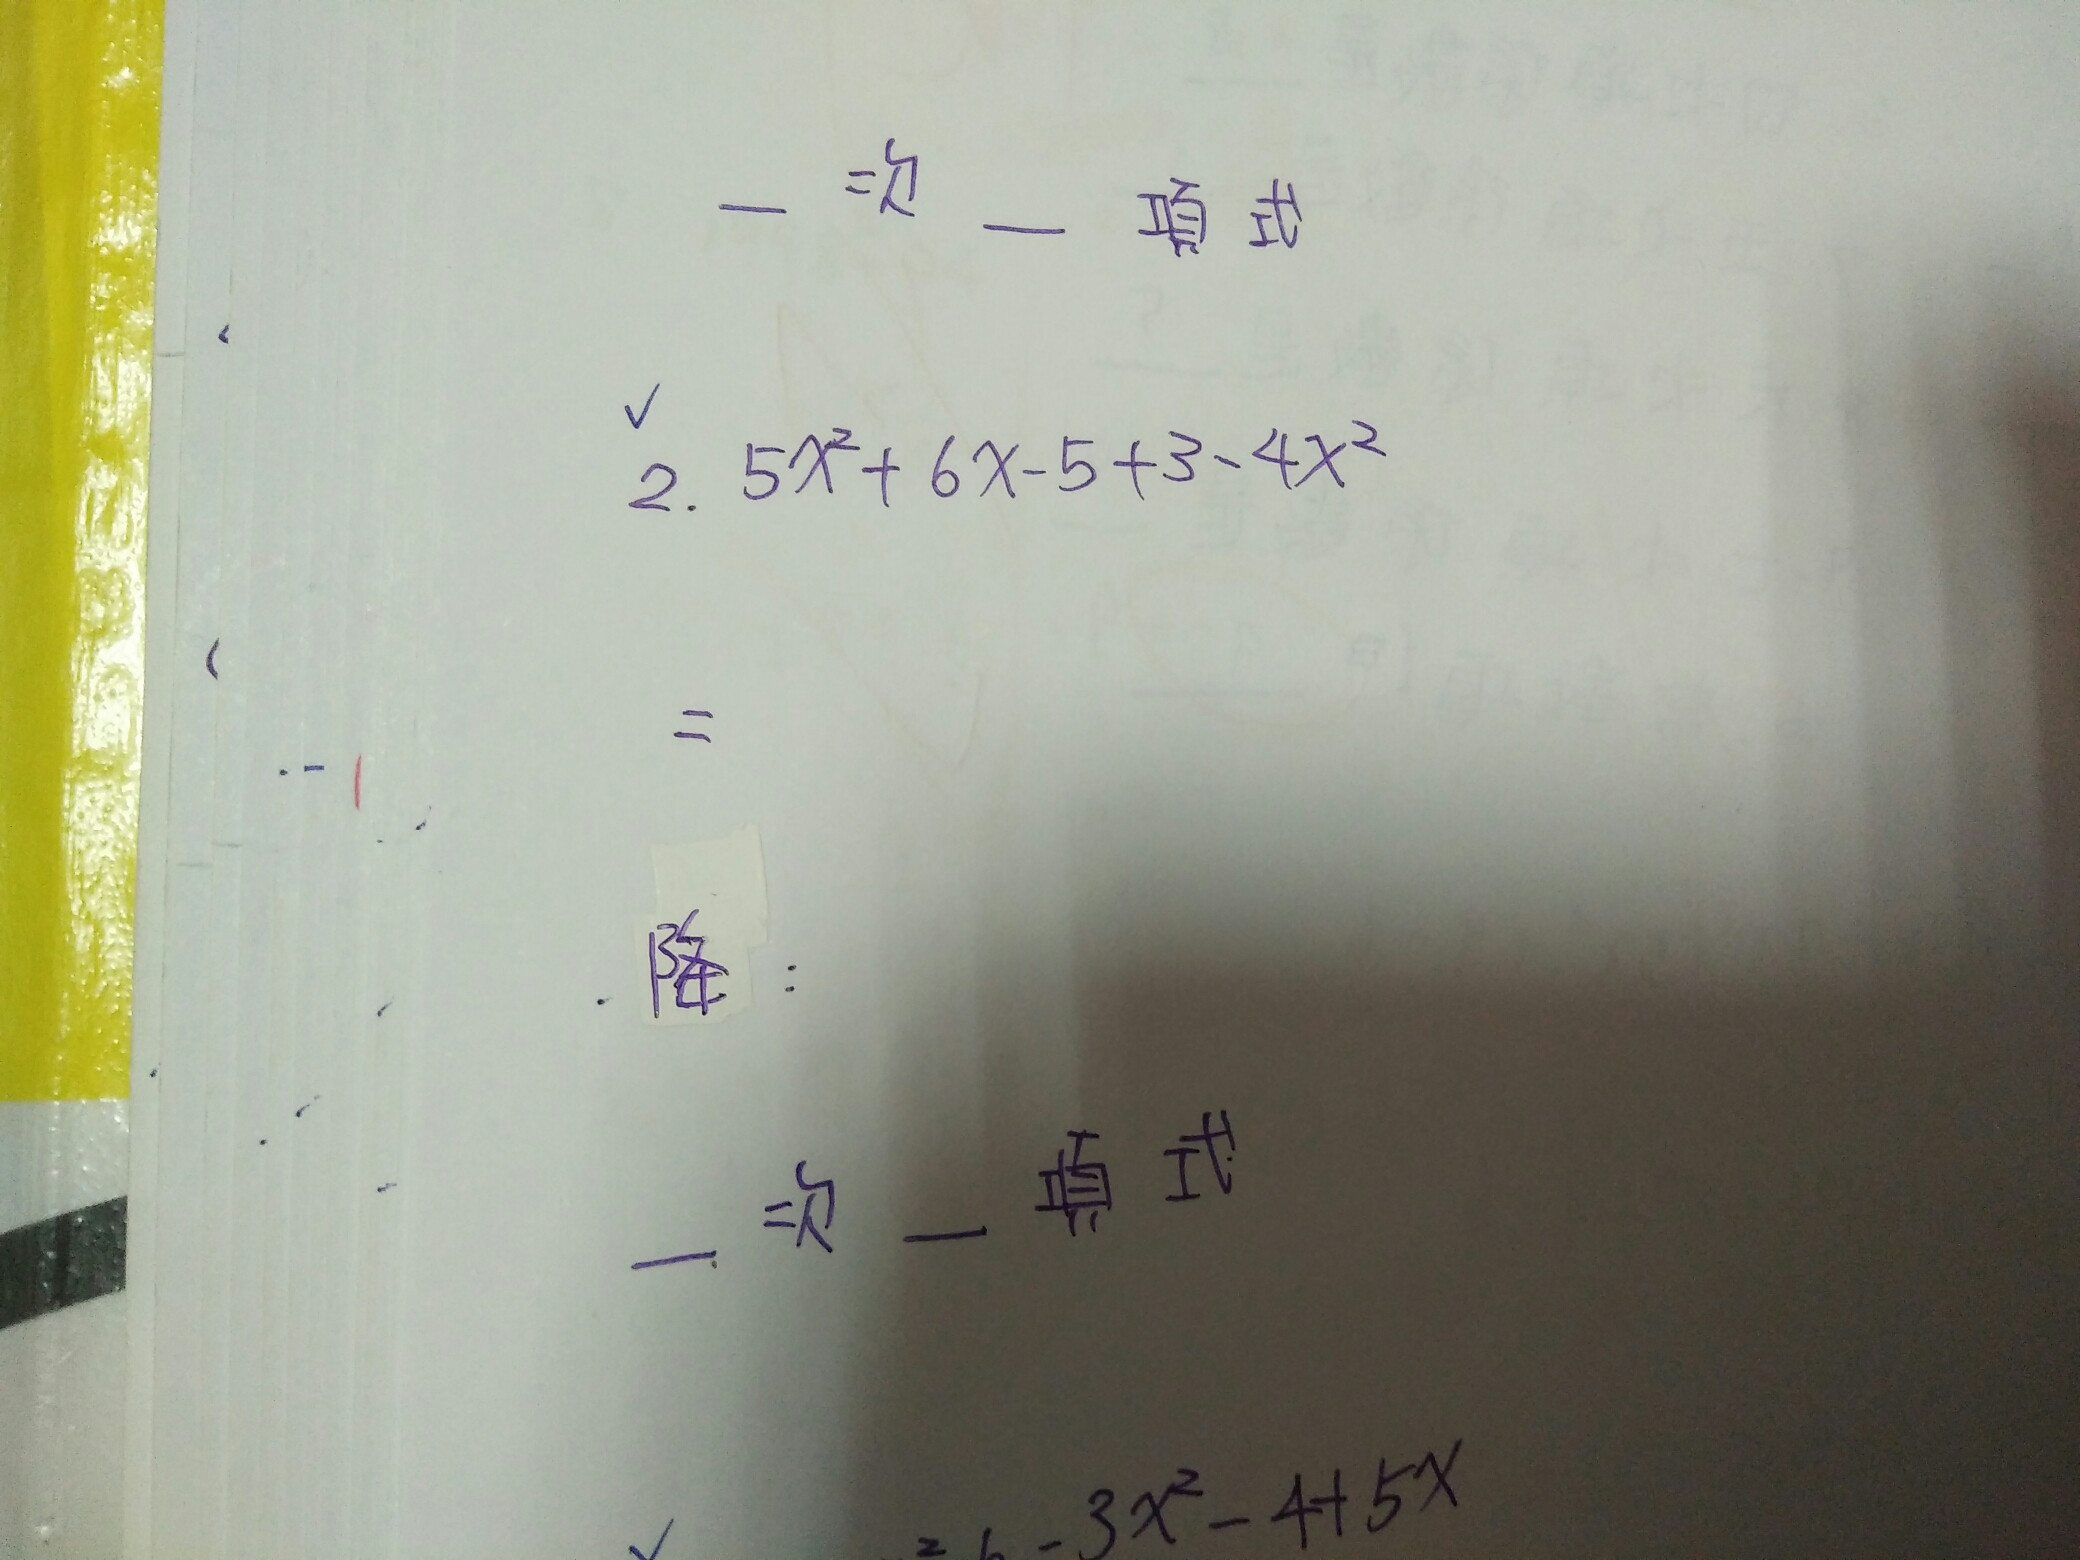 _ 次 _ 項式
✓
2. 5x²+6x-5+3-4x²
=
降:
_ 次 _ 項式
✓
-3x²-4+5x